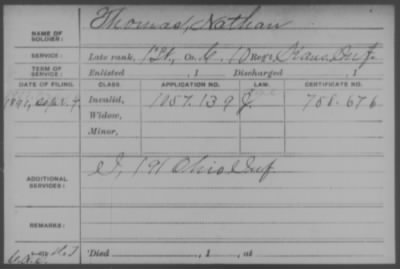 Thomas, Nathan
NAME OF SOLDIER:
SERVICE: Late rank, Pvt, Co. C, 10 Reg't, Kans. Inf.
TERM OF SERVICE: Enlisted , 1 Discharged , 1
DATE OF FILING. CLASS. APPLICATION NO. LAW. CERTIFICATE NO.
1891, Sept. 4. Invalid, 1057.139 J. 758.676
Widow,
Minor,
ADDITIONAL SERVICES: I, 191 Ohio Inf
REMARKS:
Died , 1 , at